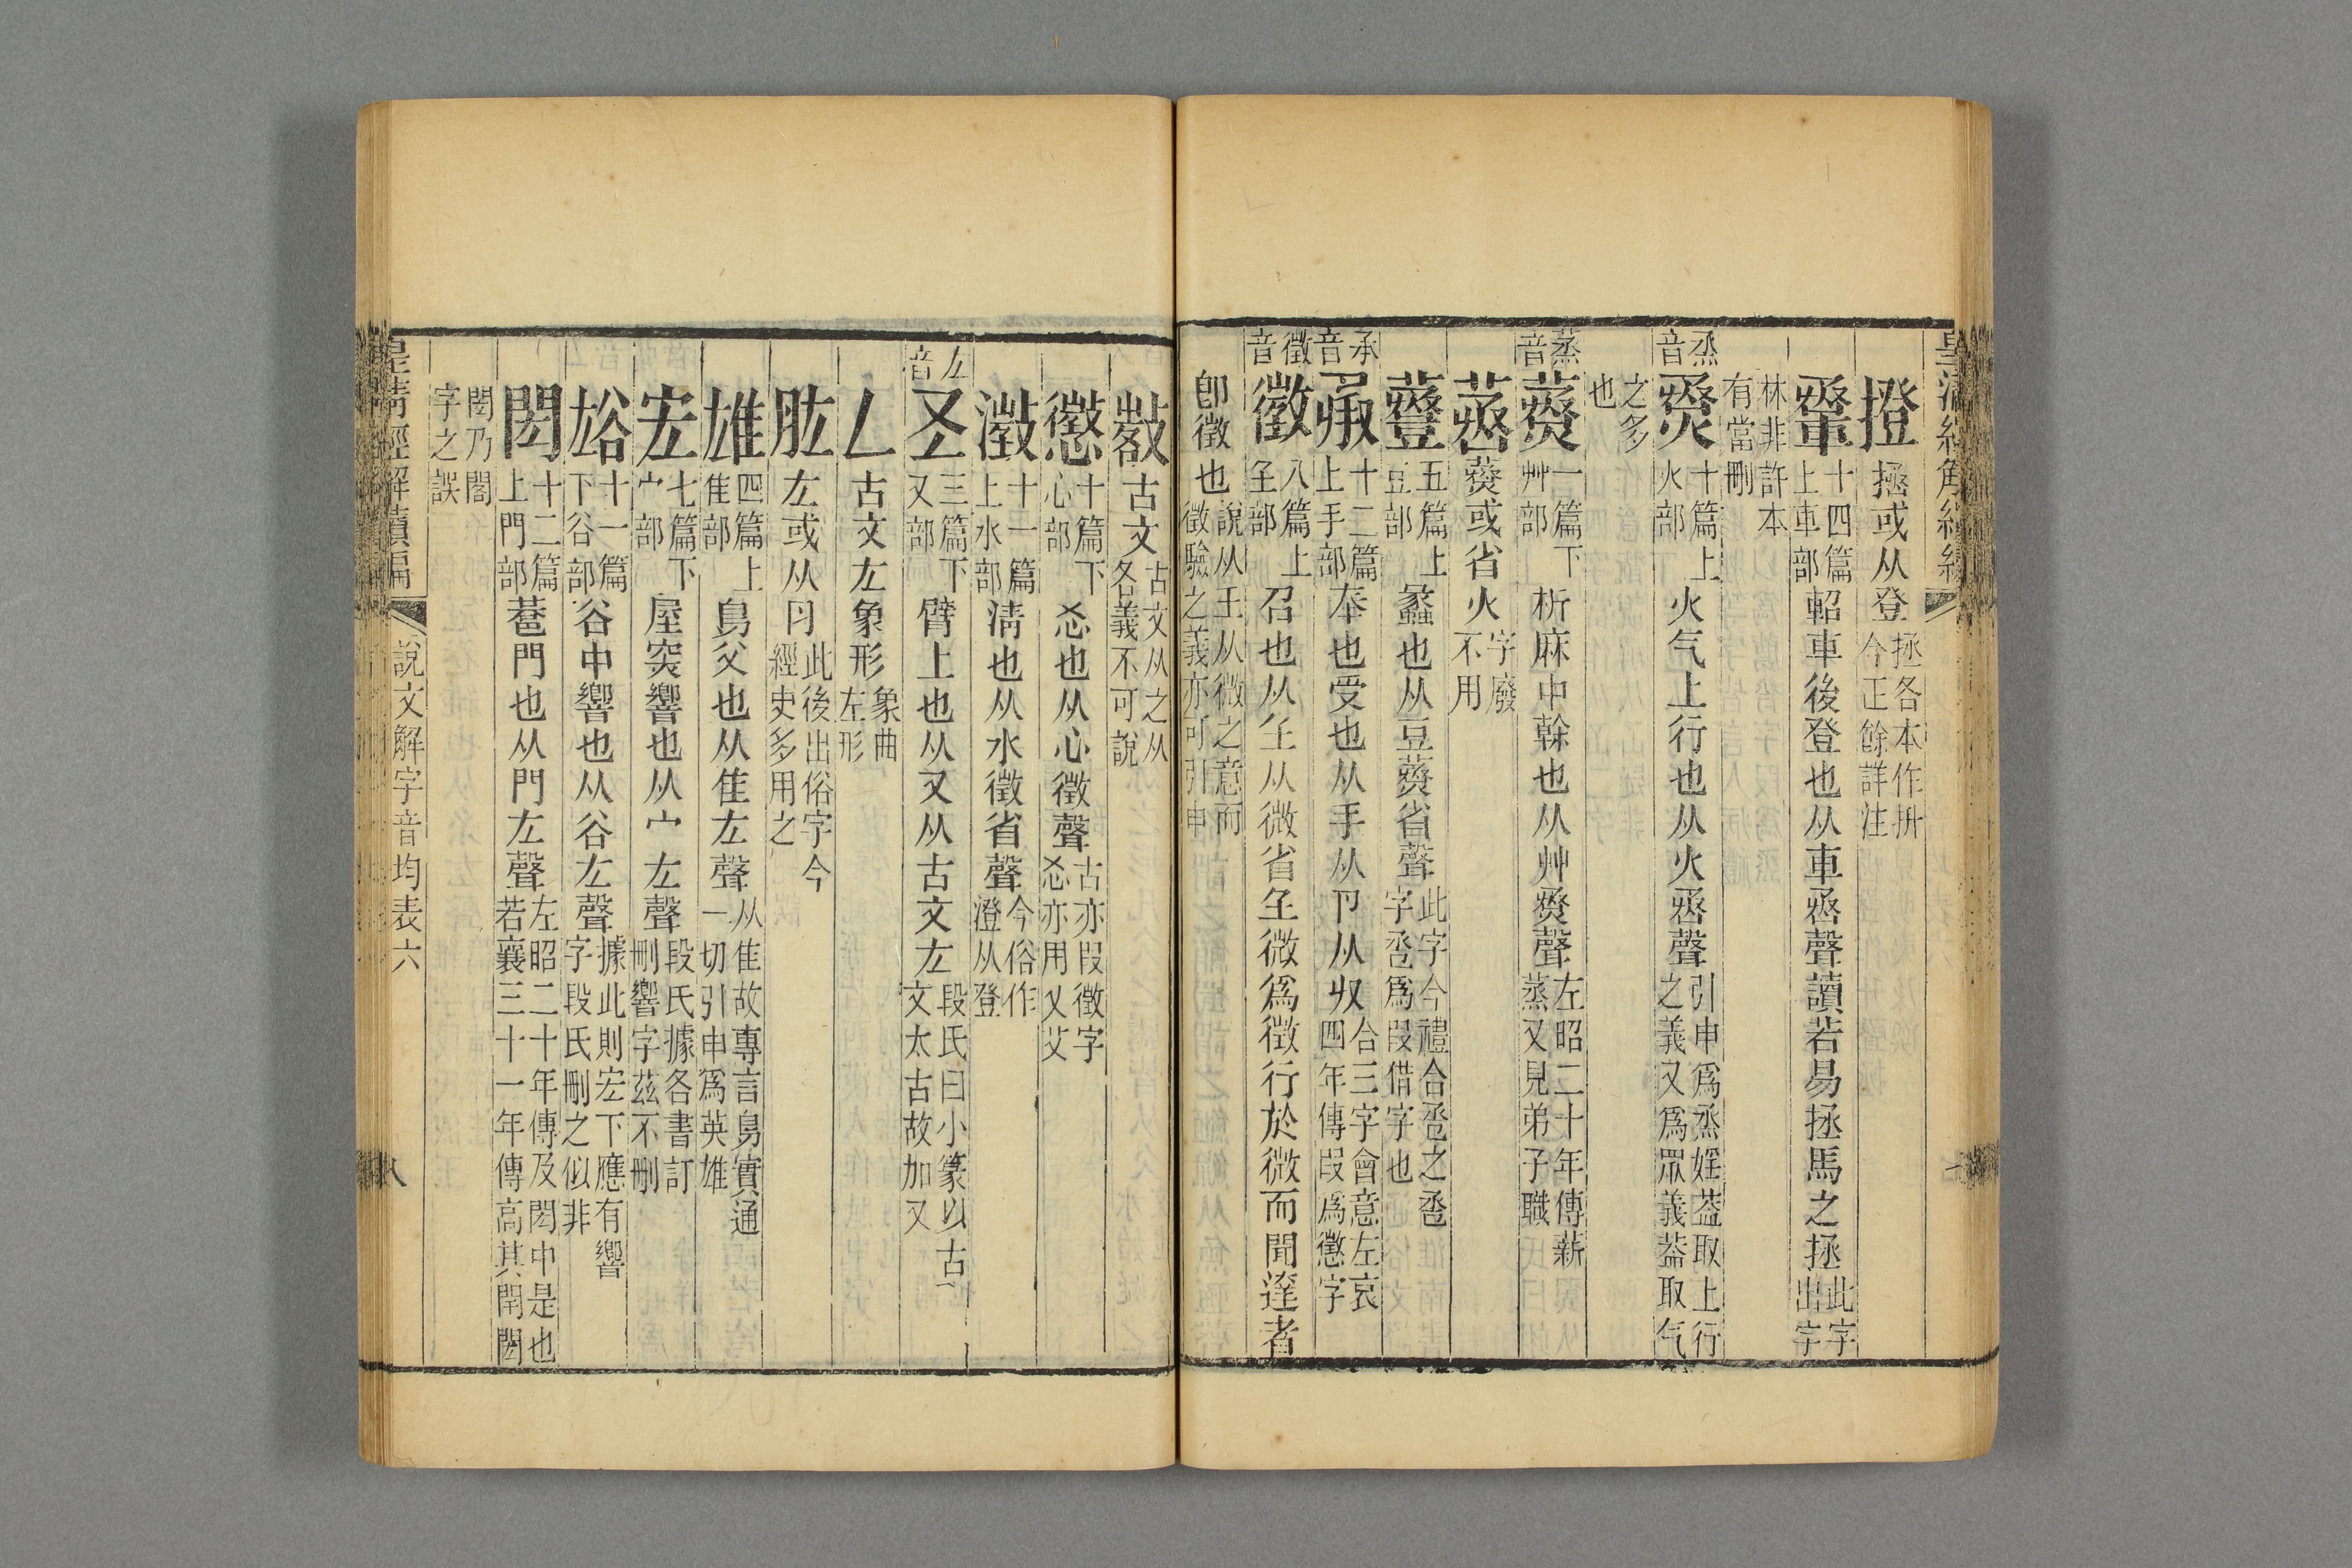 撜 拯或从登 拯各本作抍今正餘詳注
𨎌 十四篇上車部 軺車後登也从車丞聲讀若易拯馬之拯 此字出字
林非許本有當刪
烝音 烝 十篇上火部 火气上行也从火丞聲 引申爲烝婬葢取上行之義又爲眾義葢取气
之多也
蒸音 蒸 一篇下艸部 析麻中榦也从艸烝聲 左昭二十年傳薪蒸又見弟子職
䒱 蒸或省火 字廢不用
五篇上豆部 蠡也从豆蒸省聲 此字今禮合巹之巹字巹爲叚借字也
承音 承 十二篇上手部 奉也受也从手从卪从収 合三字會意左哀四年傳叚爲懲字
徵音 徵 八篇上𡈼部 召也从𡈼从微省𡈼微爲徵行於微而聞達者
卽徵也 說从王从微之意而徵驗之義亦可引申
古文 古文从之从各義不可說
懲 十篇下心部 㣻也从心徵聲 古亦叚徵字㣻亦用乂艾
澂 十一篇上水部 淸也从水徵省聲 今俗作澄从登
厷音 厷 三篇下又部 臂上也从又从古文厷 段氏曰小篆以古文太古故加又
𠃋 古文厷象形 象曲左形
肱 厷或从肉 此後出俗字今經史多用之
雄 四篇上隹部 鳥父也从隹厷聲 从隹故專言鳥實通一切引申爲英雄
宏 七篇下宀部 屋突響也从宀厷聲 段氏據各書訂刪響字茲不刪
谹 十一篇下谷部 谷中響也从谷厷聲 據此則宏下應有響字段氏刪之似非
閎 十二篇上門部 巷門也从門厷聲 左昭二十年傳及閎中是也若襄三十一年傳高其閈閎
閎乃閣字之誤
皇淸經解續編 說文解字音均表六 八